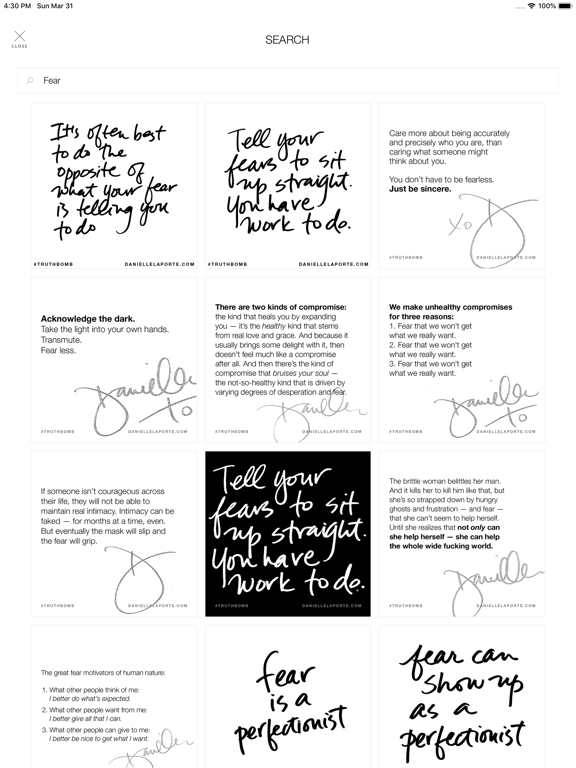 4:30 PM Sun Mar 31
100%
CLOSE
SEARCH
Fear
It's often best
to do the
opposite of
what your fear
is telling you
to do
#TRUTHBOMB DANIELLELAPORTE.COM
Tell your
fears to sit
up straight.
You have
work to do.
#TRUTHBOMB DANIELLELAPORTE.COM
Care more about being accurately
and precisely who you are, than
caring what someone might
think about you.
You don't have to be fearless.
Just be sincere.
xo D
#TRUTHBOMB DANIELLELAPORTE.COM
Acknowledge the dark.
Take the light into your own hands.
Transmute.
Fear less.
Danielle
xo
#TRUTHBOMB DANIELLELAPORTE.COM
There are two kinds of compromise:
the kind that heals you by expanding
you — it's the healthy kind that stems
from real love and grace. And because it
usually brings some delight with it, then
doesn't feel much like a compromise
after all. And then there's the kind of
compromise that bruises your soul —
the not-so-healthy kind that is driven by
varying degrees of desperation and fear.
Danielle
#TRUTHBOMB DANIELLELAPORTE.COM
We make unhealthy compromises
for three reasons:
1. Fear that we won't get
what we really want.
2. Fear that we won't get
what we really want.
3. Fear that we won't get
what we really want.
Danielle
xo
#TRUTHBOMB DANIELLELAPORTE.COM
If someone isn't courageous across
their life, they will not be able to
maintain real intimacy. Intimacy can be
faked — for months at a time, even.
But eventually the mask will slip and
the fear will grip.
D
#TRUTHBOMB DANIELLELAPORTE.COM
Tell your
fears to sit
up straight.
You have
work to do.
#TRUTHBOMB DANIELLELAPORTE.COM
The brittle woman belittles her man.
And it kills her to kill him like that, but
she's so strapped down by hungry
ghosts and frustration — and fear —
that she can't seem to help herself.
Until she realizes that not only can
she help herself — she can help
the whole wide fucking world.
Danielle
#TRUTHBOMB DANIELLELAPORTE.COM
The great fear motivators of human nature:
1. What other people think of me:
I better do what's expected.
2. What other people want from me:
I better give all that I can.
3. What other people can give to me:
I better be nice to get what I want.
Danielle
fear
is a
perfectionist
fear can
show up
as a
perfectionist